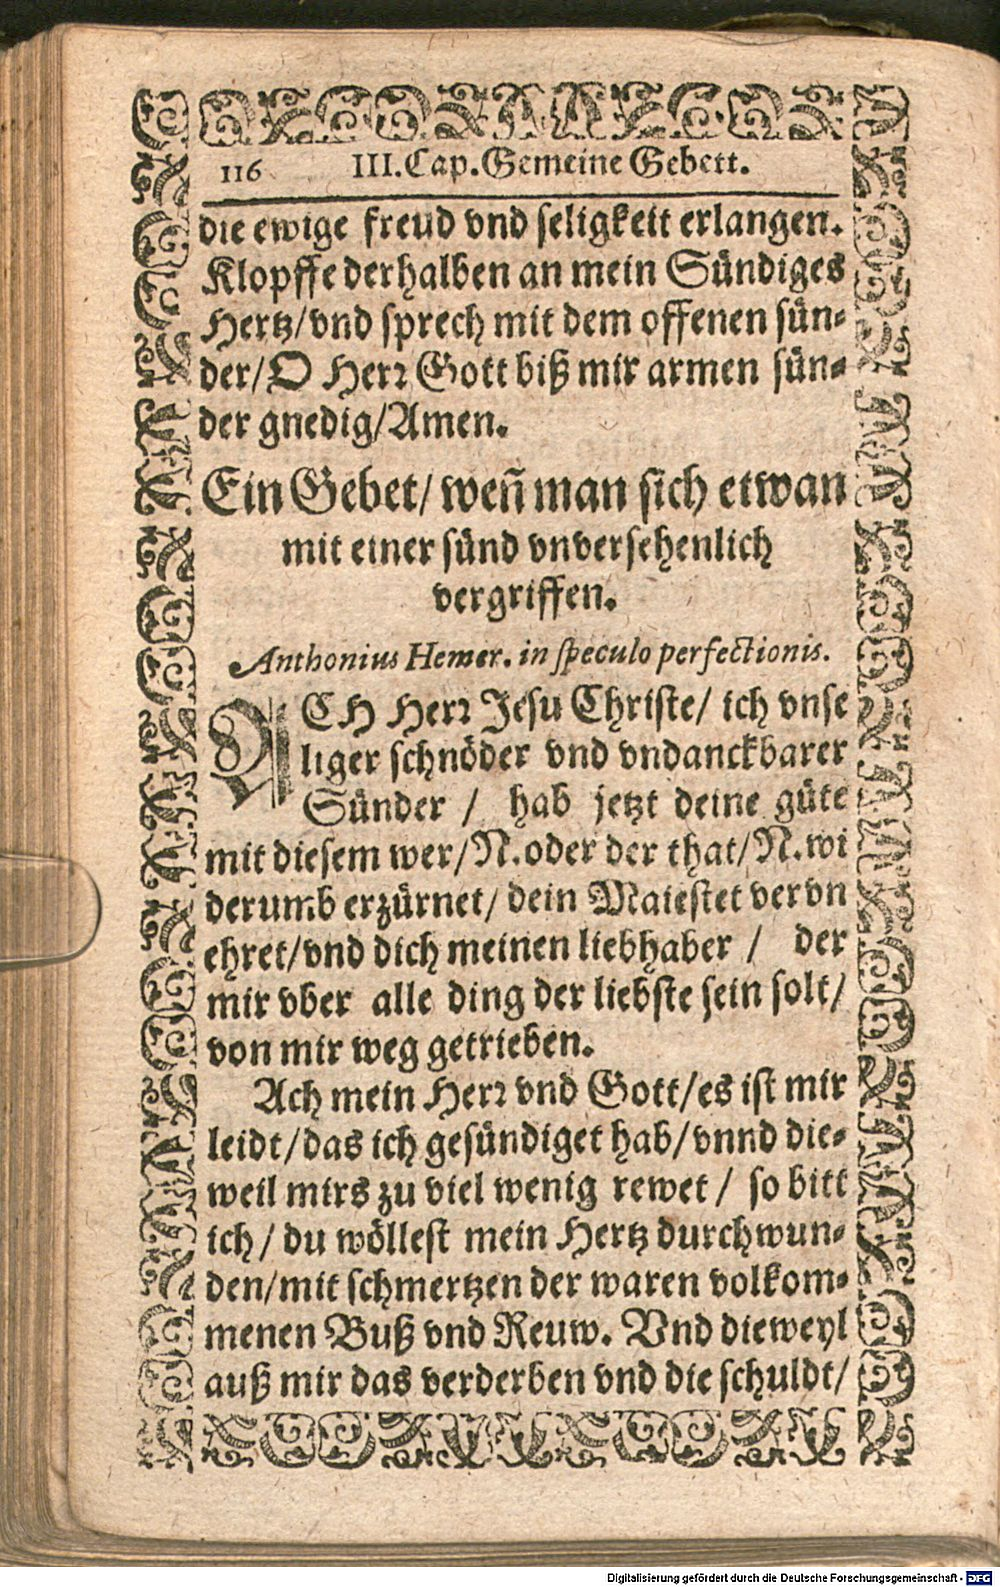 116 III. Cap. Gemeine Gebett.
die ewige freud vnd seligkeit erlangen.
Klopffe derhalben an mein Sündiges
Hertz/vnd sprech mit dem offenen sün-
der/O Herr Gott biß mir armen sün-
der gnedig/Amen.
Ein Gebet/ weñ man sich etwan
mit einer sünd vnversehenlich
vergriffen.
Anthonius Hemer. in speculo perfectionis.
ACH Herr Jesu Christe/ ich vnse
liger schnöder vnd vndanckbarer
Sünder / hab jetzt deine güte
mit diesem wer/N.oder der that/N.wi
derumb erzürnet/ dein Maiestet vervn
ehret/vnd dich meinen liebhaber / der
mir vber alle ding der liebste sein solt/
von mir weg getrieben.
Ach mein Herr vnd Gott/es ist mir
leidt/das ich gesündiget hab/vnnd die-
weil mirs zu viel wenig rewet / so bitt
ich / du wöllest mein Hertz durchwun-
den/mit schmertzen der waren volkom-
menen Buß vnd Reuw. Vnd dieweyl
auß mir das verderben vnd die schuldt/
Digitalisierung gefördert durch die Deutsche Forschungsgemeinschaft - DFG